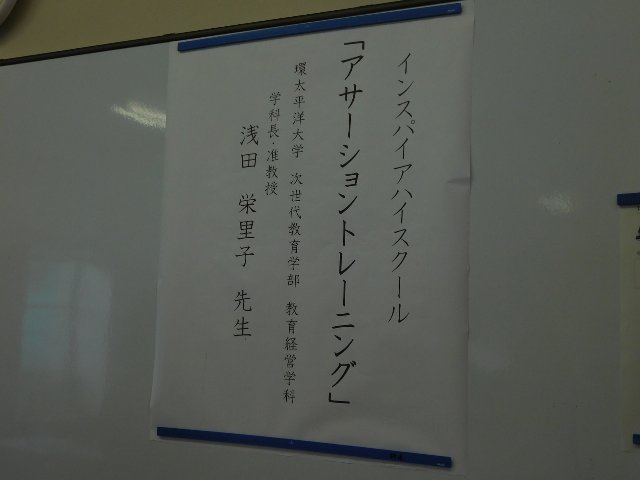 インスパイアハイスクール
「アサーショントレーニング」
環太平洋大学 次世代教育学部 教育経営学科
学科長・准教授
浅田 栄里子 先生